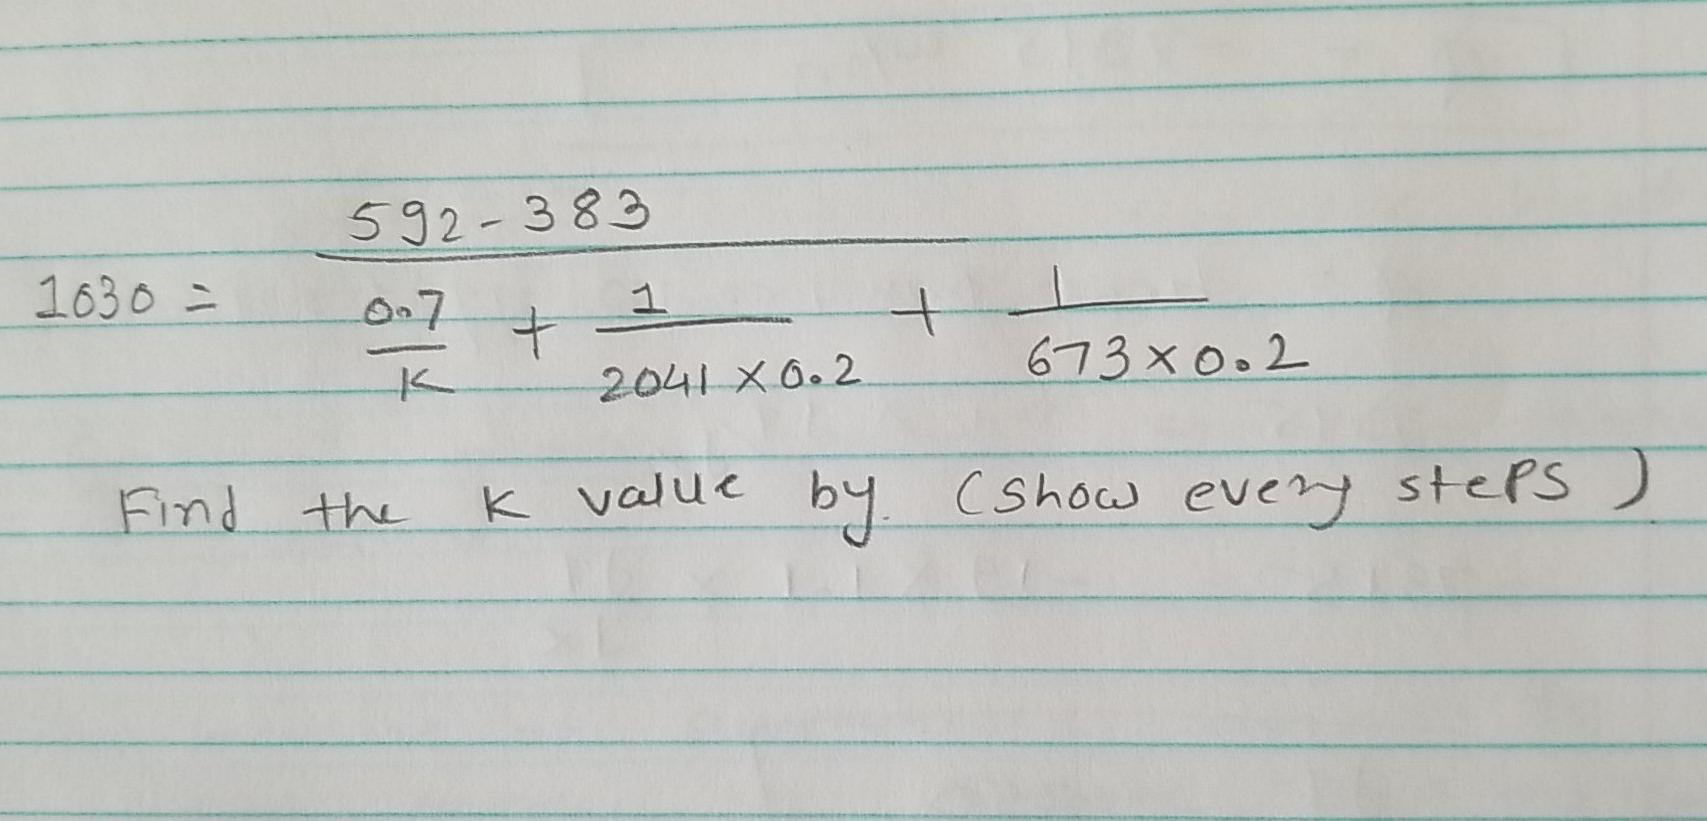 592-383
1030 = 0.7/K + 1/2041 × 0.2 + 1/673 × 0.2
Find the K value by. (show every steps)